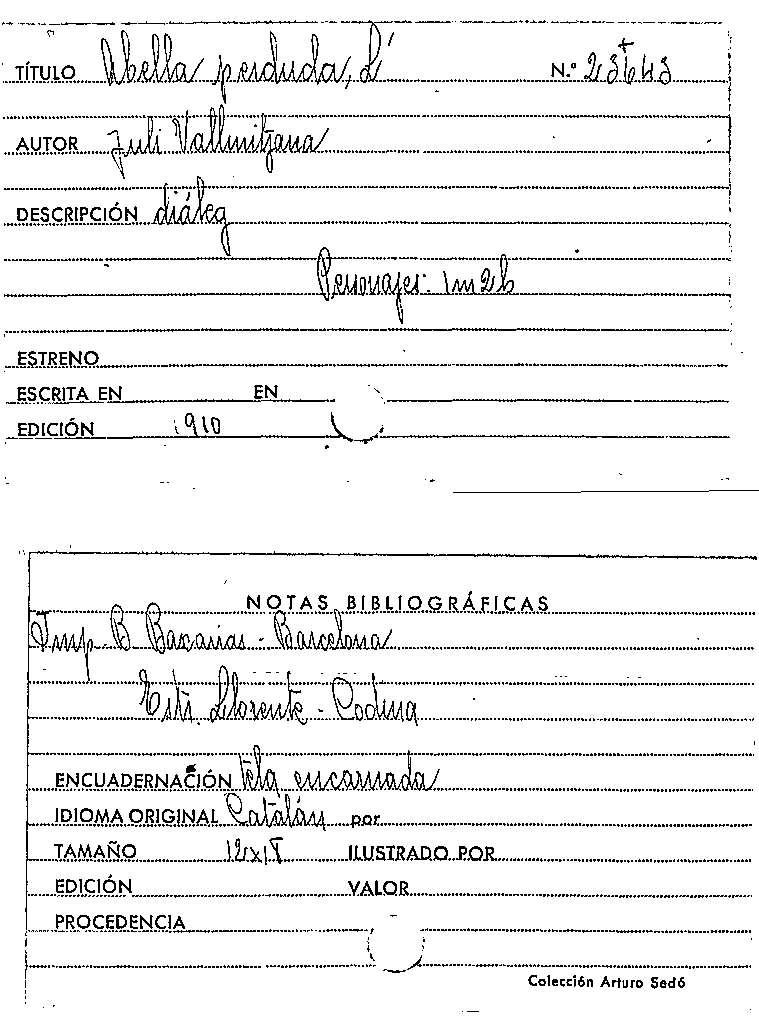 TÍTULO Abella perduda, L' N.º 23643
AUTOR Juli Vallmitjana
DESCRIPCIÓN diáleg
Personajes: 1m 2h
ESTRENO
ESCRITA EN EN
EDICIÓN 1910
NOTAS BIBLIOGRÁFICAS
Imp. B. Baxarias - Barcelona
Llorente - Codina
ENCUADERNACIÓN tela encarnada
IDIOMA ORIGINAL Catalán por
TAMAÑO ILUSTRADO POR
EDICIÓN VALOR
PROCEDENCIA
Colección Arturo Sedó